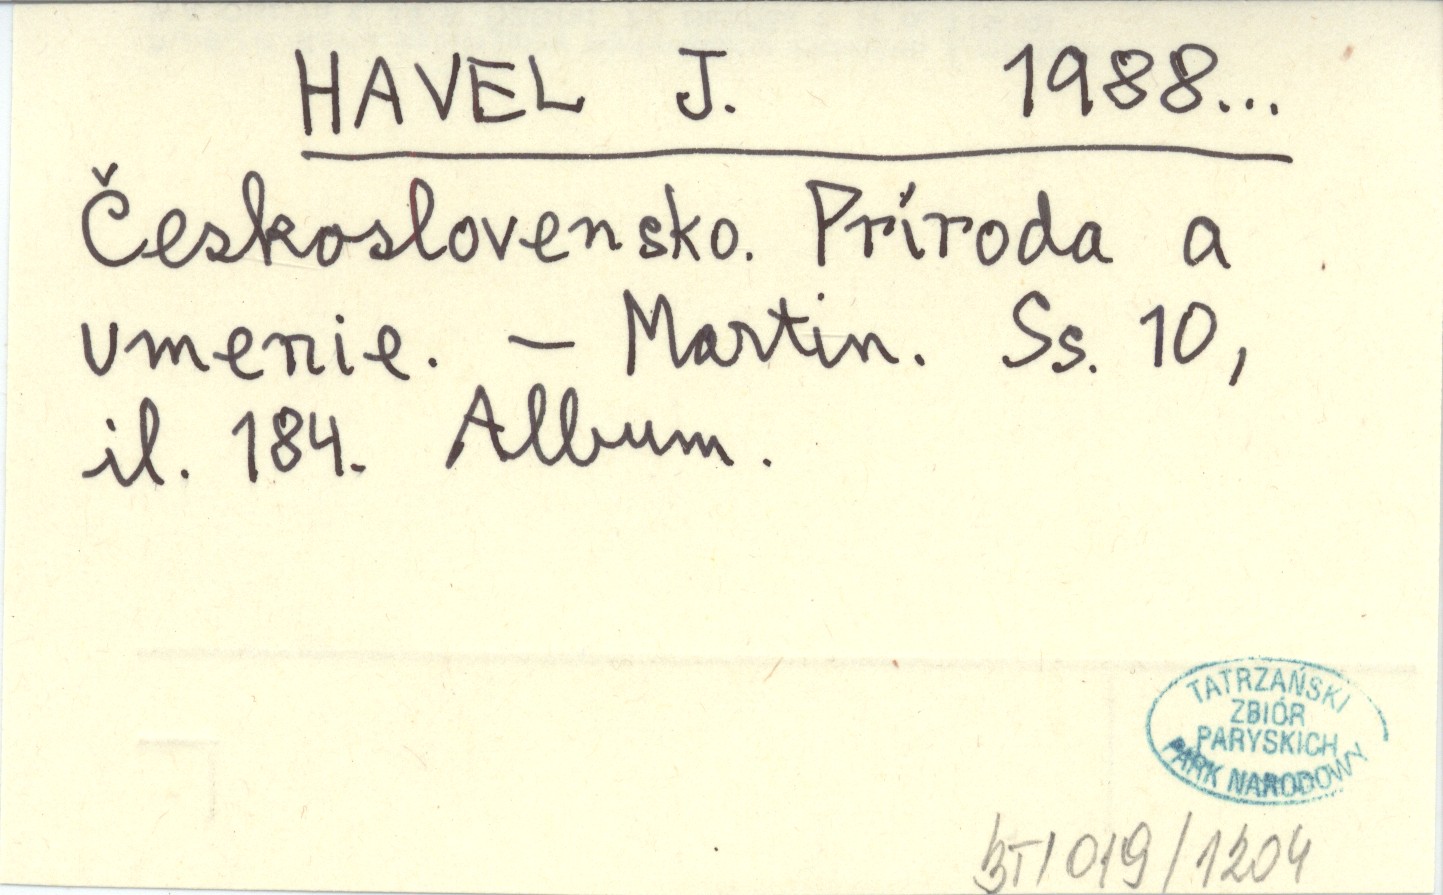 HAVEL J. 1988...
Československo. Príroda a
umenie. – Martin. Ss. 10,
il. 184. Album.
TATRZAŃSKI
ZBIÓR
PARYSKICH
PARK NARODOWY
BT/019/1204